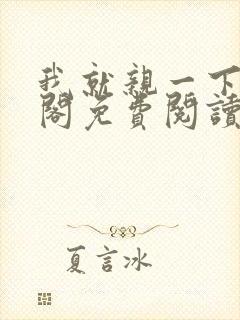 我就親一下
閣免費閱讀
夏言冰